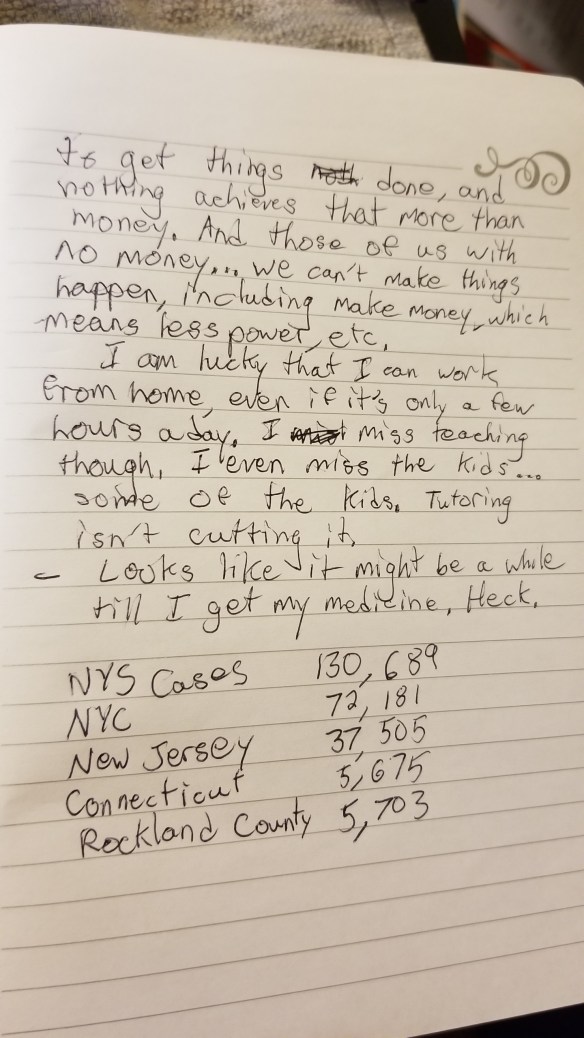 to get things done, and
nothing achieves that more than
money. And those of us with
no money... we can't make things
happen, including make money, which
means less power, etc.
I am lucky that I can work
from home, even if it's only a few
hours a day. I miss teaching
though. I even miss the kids...
some of the kids. Tutoring
isn't cutting it.
- Looks like it might be a while
till I get my medicine, Heck.
NYS Cases 130,689
NYC 72,181
New Jersey 37,505
Connecticut 5,675
Rockland County 5,703